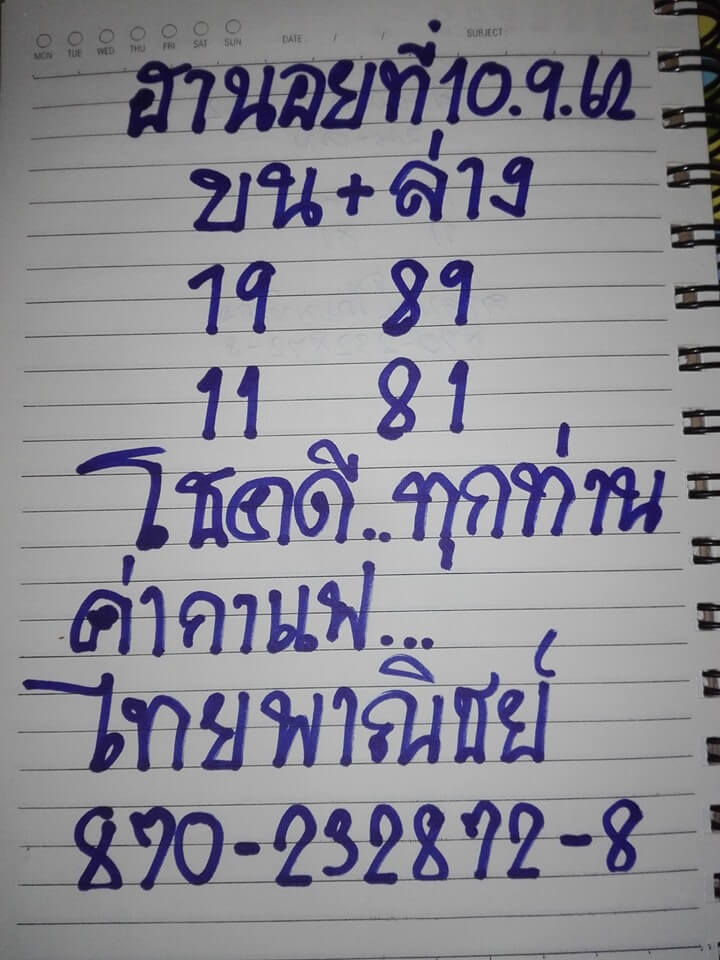 MON TUE WED THU FRI SAT SUN DATE: / / SUBJECT:
ฮานอยที่10.9.62
บน+ล่าง
19 89
11 81
โชคดี..ทุกท่าน
ค่ากาแฟ...
ไทยพาณิชย์
870-232872-8